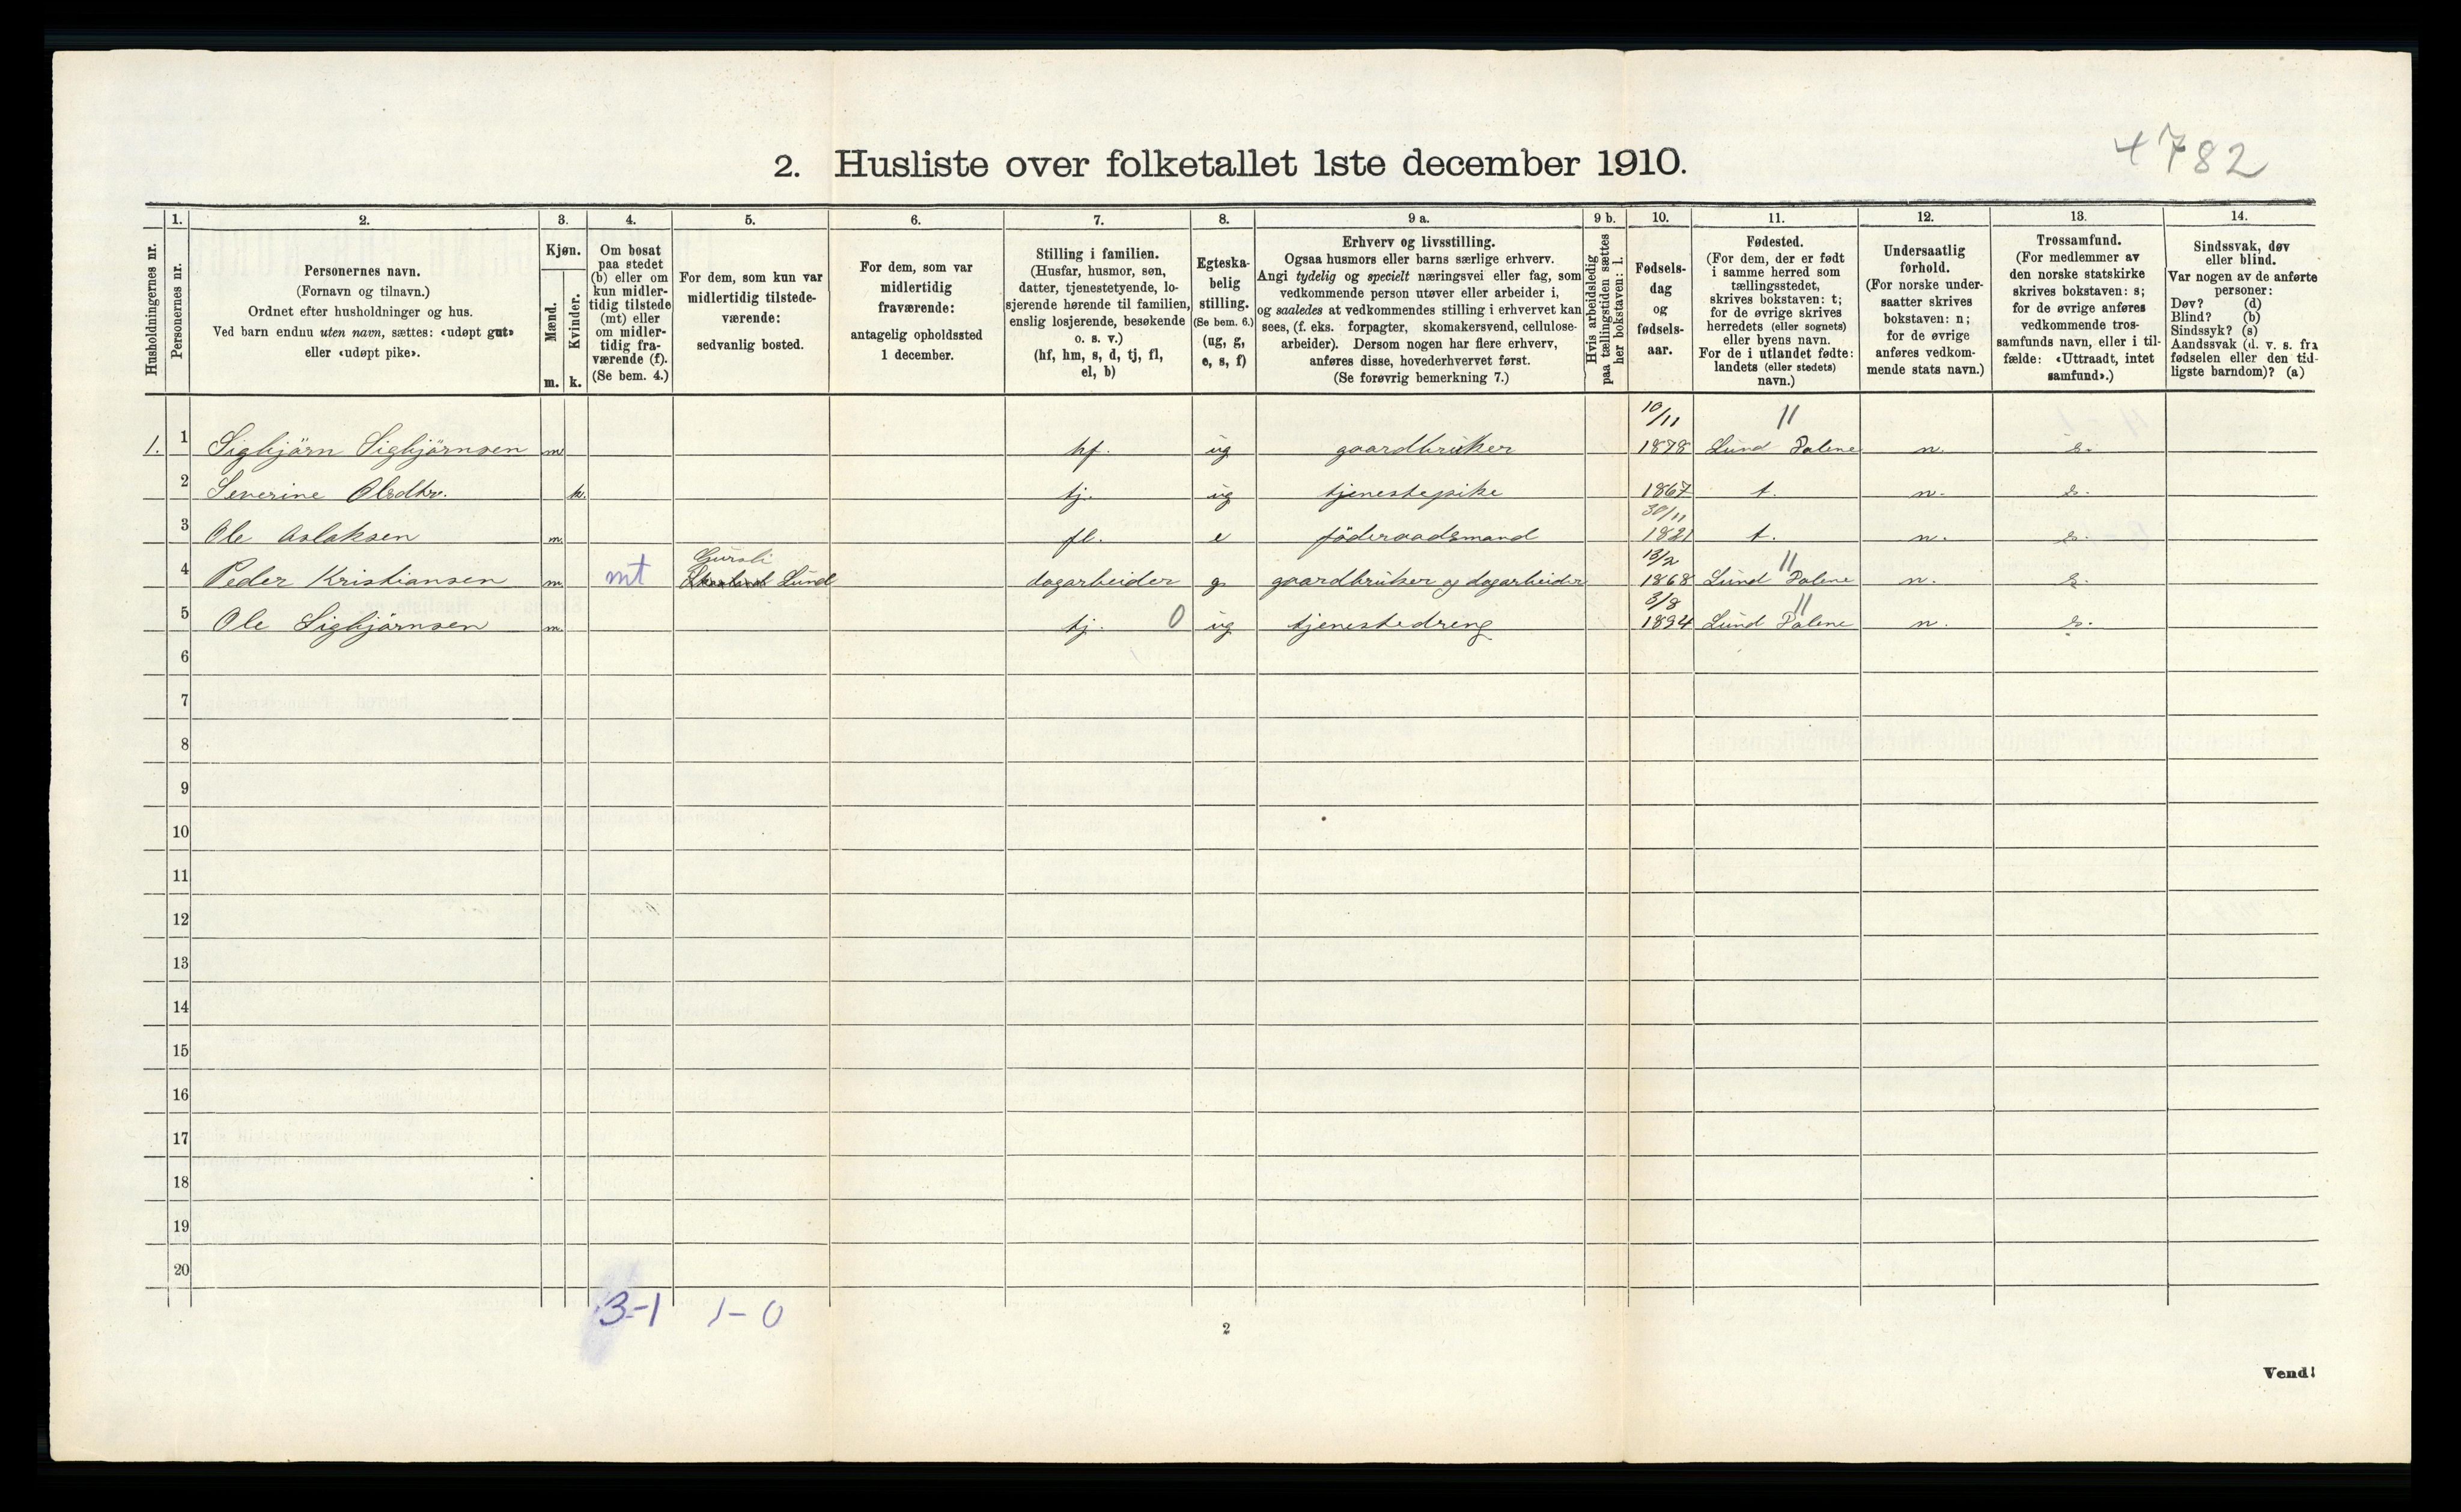 4782
2. Husliste over folketallet 1ste december 1910.
Husholdningernes nr.
1.
Personernes nr.
2.
Personernes navn.
(Fornavn og tilnavn.)
Ordnet efter husholdninger og hus.
Ved barn endnu uten navn, sættes: «udøpt gut»
eller «udøpt pike».
3.
Kjøn.
Mænd.
Kvinder.
m. k.
4.
Om bosat
paa stedet
(b) eller om
kun midler-
tidig tilstede
(mt) eller
om midler-
tidig fra-
værende (f).
(Se bem. 4.)
5.
For dem, som kun var
midlertidig tilstede-
værende:
sedvanlig bosted.
6.
For dem, som var
midlertidig
fraværende:
antagelig opholdssted
1 december.
7.
Stilling i familien.
(Husfar, husmor, søn,
datter, tjenestetyende, lo-
sjerende hørende til familien,
enslig losjerende, besøkende
o. s. v.)
(hf, hm, s, d, tj, fl,
el, b)
8.
Egteska-
belig
stilling.
(Se bem. 6.)
(ug, g,
e, s, f)
9 a.
Erhverv og livsstilling.
Ogsaa husmors eller barns særlige erhverv.
Angi tydelig og specielt næringsvei eller fag, som
vedkommende person utøver eller arbeider i,
og saaledes at vedkommendes stilling i erhvervet kan
sees, (f. eks. forpagter, skomakersvend, cellulose-
arbeider). Dersom nogen har flere erhverv,
anføres disse, hovederhvervet først.
(Se forøvrig bemerkning 7.)
9 b.
Hvis arbeidsledig
paa tællingstiden sættes
her bokstaven: l.
10.
Fødsels-
dag
og
fødsels-
aar.
11.
Fødested.
(For dem, der er født
i samme herred som
tællingsstedet,
skrives bokstaven: t;
for de øvrige skrives
herredets (eller sognets)
eller byens navn.
For de i utlandet fødte:
landets (eller stedets)
navn.)
12.
Undersaatlig
forhold.
(For norske under-
saatter skrives
bokstaven: n;
for de øvrige
anføres vedkom-
mende stats navn.)
13.
Trossamfund.
(For medlemmer av
den norske statskirke
skrives bokstaven: s;
for de øvrige anføres
vedkommende tros-
samfunds navn, eller i til-
fælde: «Uttraadt, intet
samfund».)
14.
Sindssvak, døv
eller blind.
Var nogen av de anførte
personer:
Døv? (d)
Blind? (b)
Sindssyk? (s)
Aandssvak (d. v. s. fra
fødselen eller den tid-
ligste barndom)? (a)
10/11 11
1. 1 Sigbjörn Sigbjörnsen m hf. ug gaardbruker 1878 Lund Dalene n. s.
2 Severine Olsdtr. k. tj. ug tjenestepike 1867 t. n. s.
30/11
3 Ole Aslaksen m. fl. e föderaadsmand 1821 t. n. s.
Gursli 13/2 11
4 Peder Kristiansen m. mt Lund dagarbeider g. gaardbruker og dagarbeider 1868 Lund Dalene n. s.
3/8 11
5 Ole Sigbjørnsen m. tj. 0 ug tjenestedreng 1894 Lund Dalene n. s.
6
7
8
9
10
11
12
13
14
15
16
17
18
19
20
3-1 1-0
2
Vend!